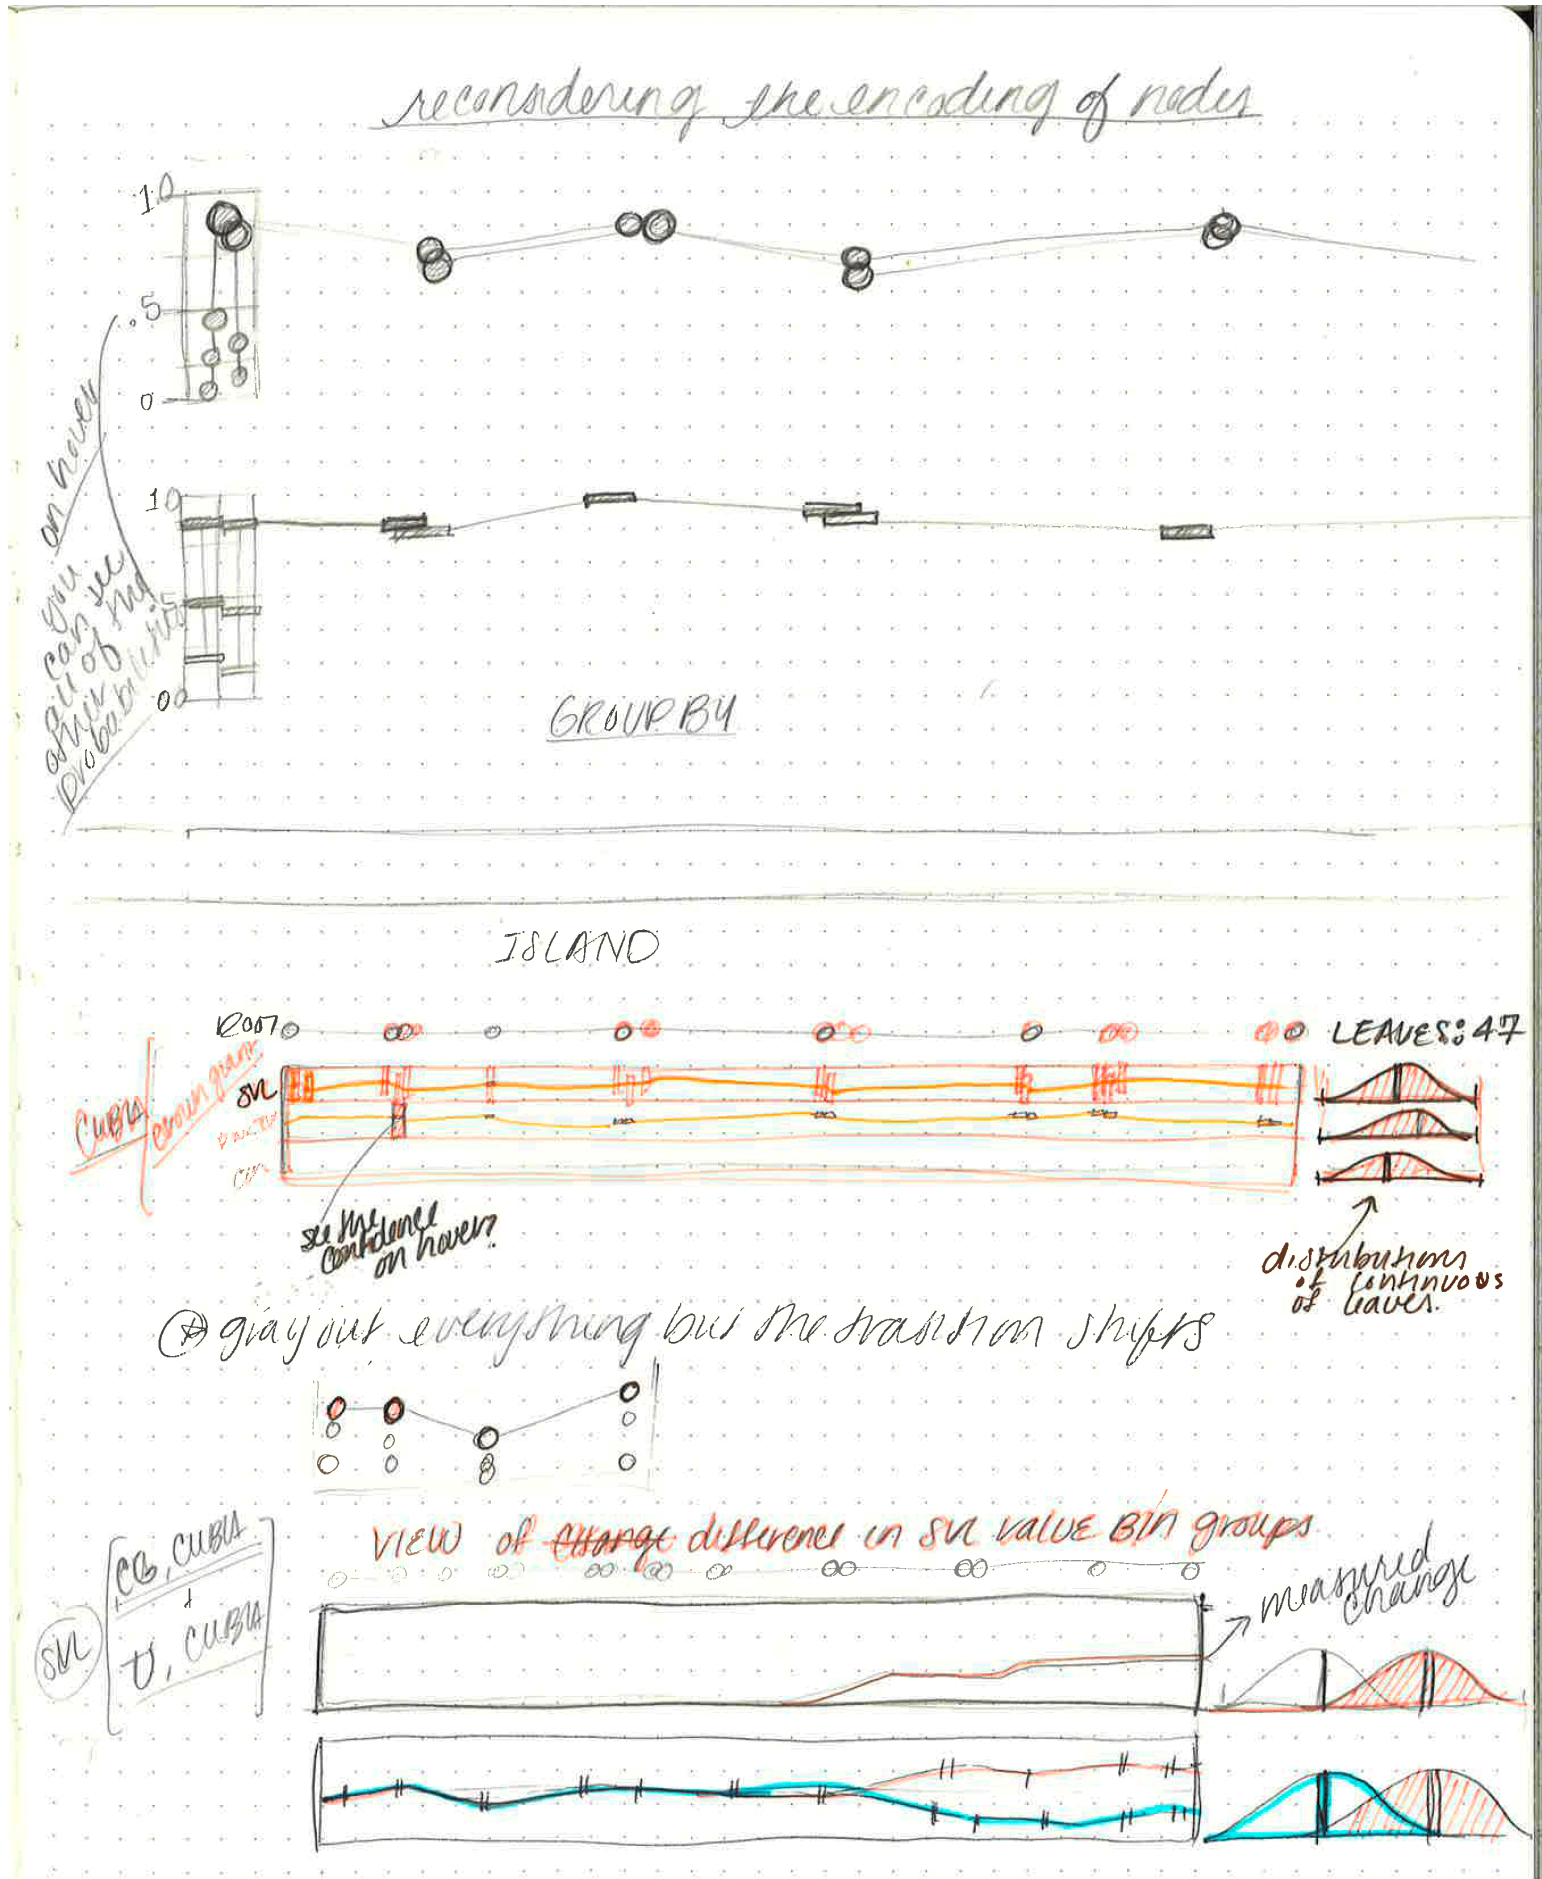 reconsidering the encoding of nodes
1.0
.5
0
on hover
you
can see
all of the
other
probabilities
1.0
.5
0
GROUP BY
ISLAND
ROOT
LEAVES: 47
CUBA/
crown giant
SVL
CUBA
see the
confidence
on hover?
distributions
of continuous
of leaves.
gray out everything but the trasition shifts
VIEW of change difference in SVL value Bin groups
CG, CUBA
+
T, CUBA
SVL
measured
change